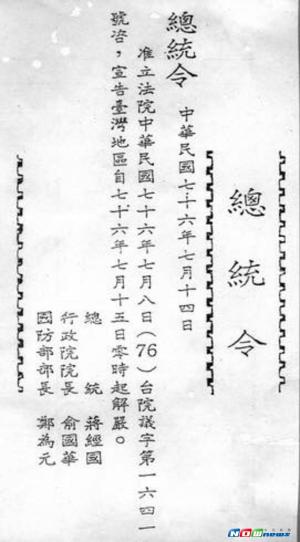 總統令
總統令 中華民國七十六年七月十四日
准立法院中華民國七十六年七月八日(76)台院議字第一六四一
號咨,宣告臺灣地區自七十六年七月十五日零時起解嚴。
總統 蔣經國
行政院院長 俞國華
國防部部長 鄭為元
NOWnews